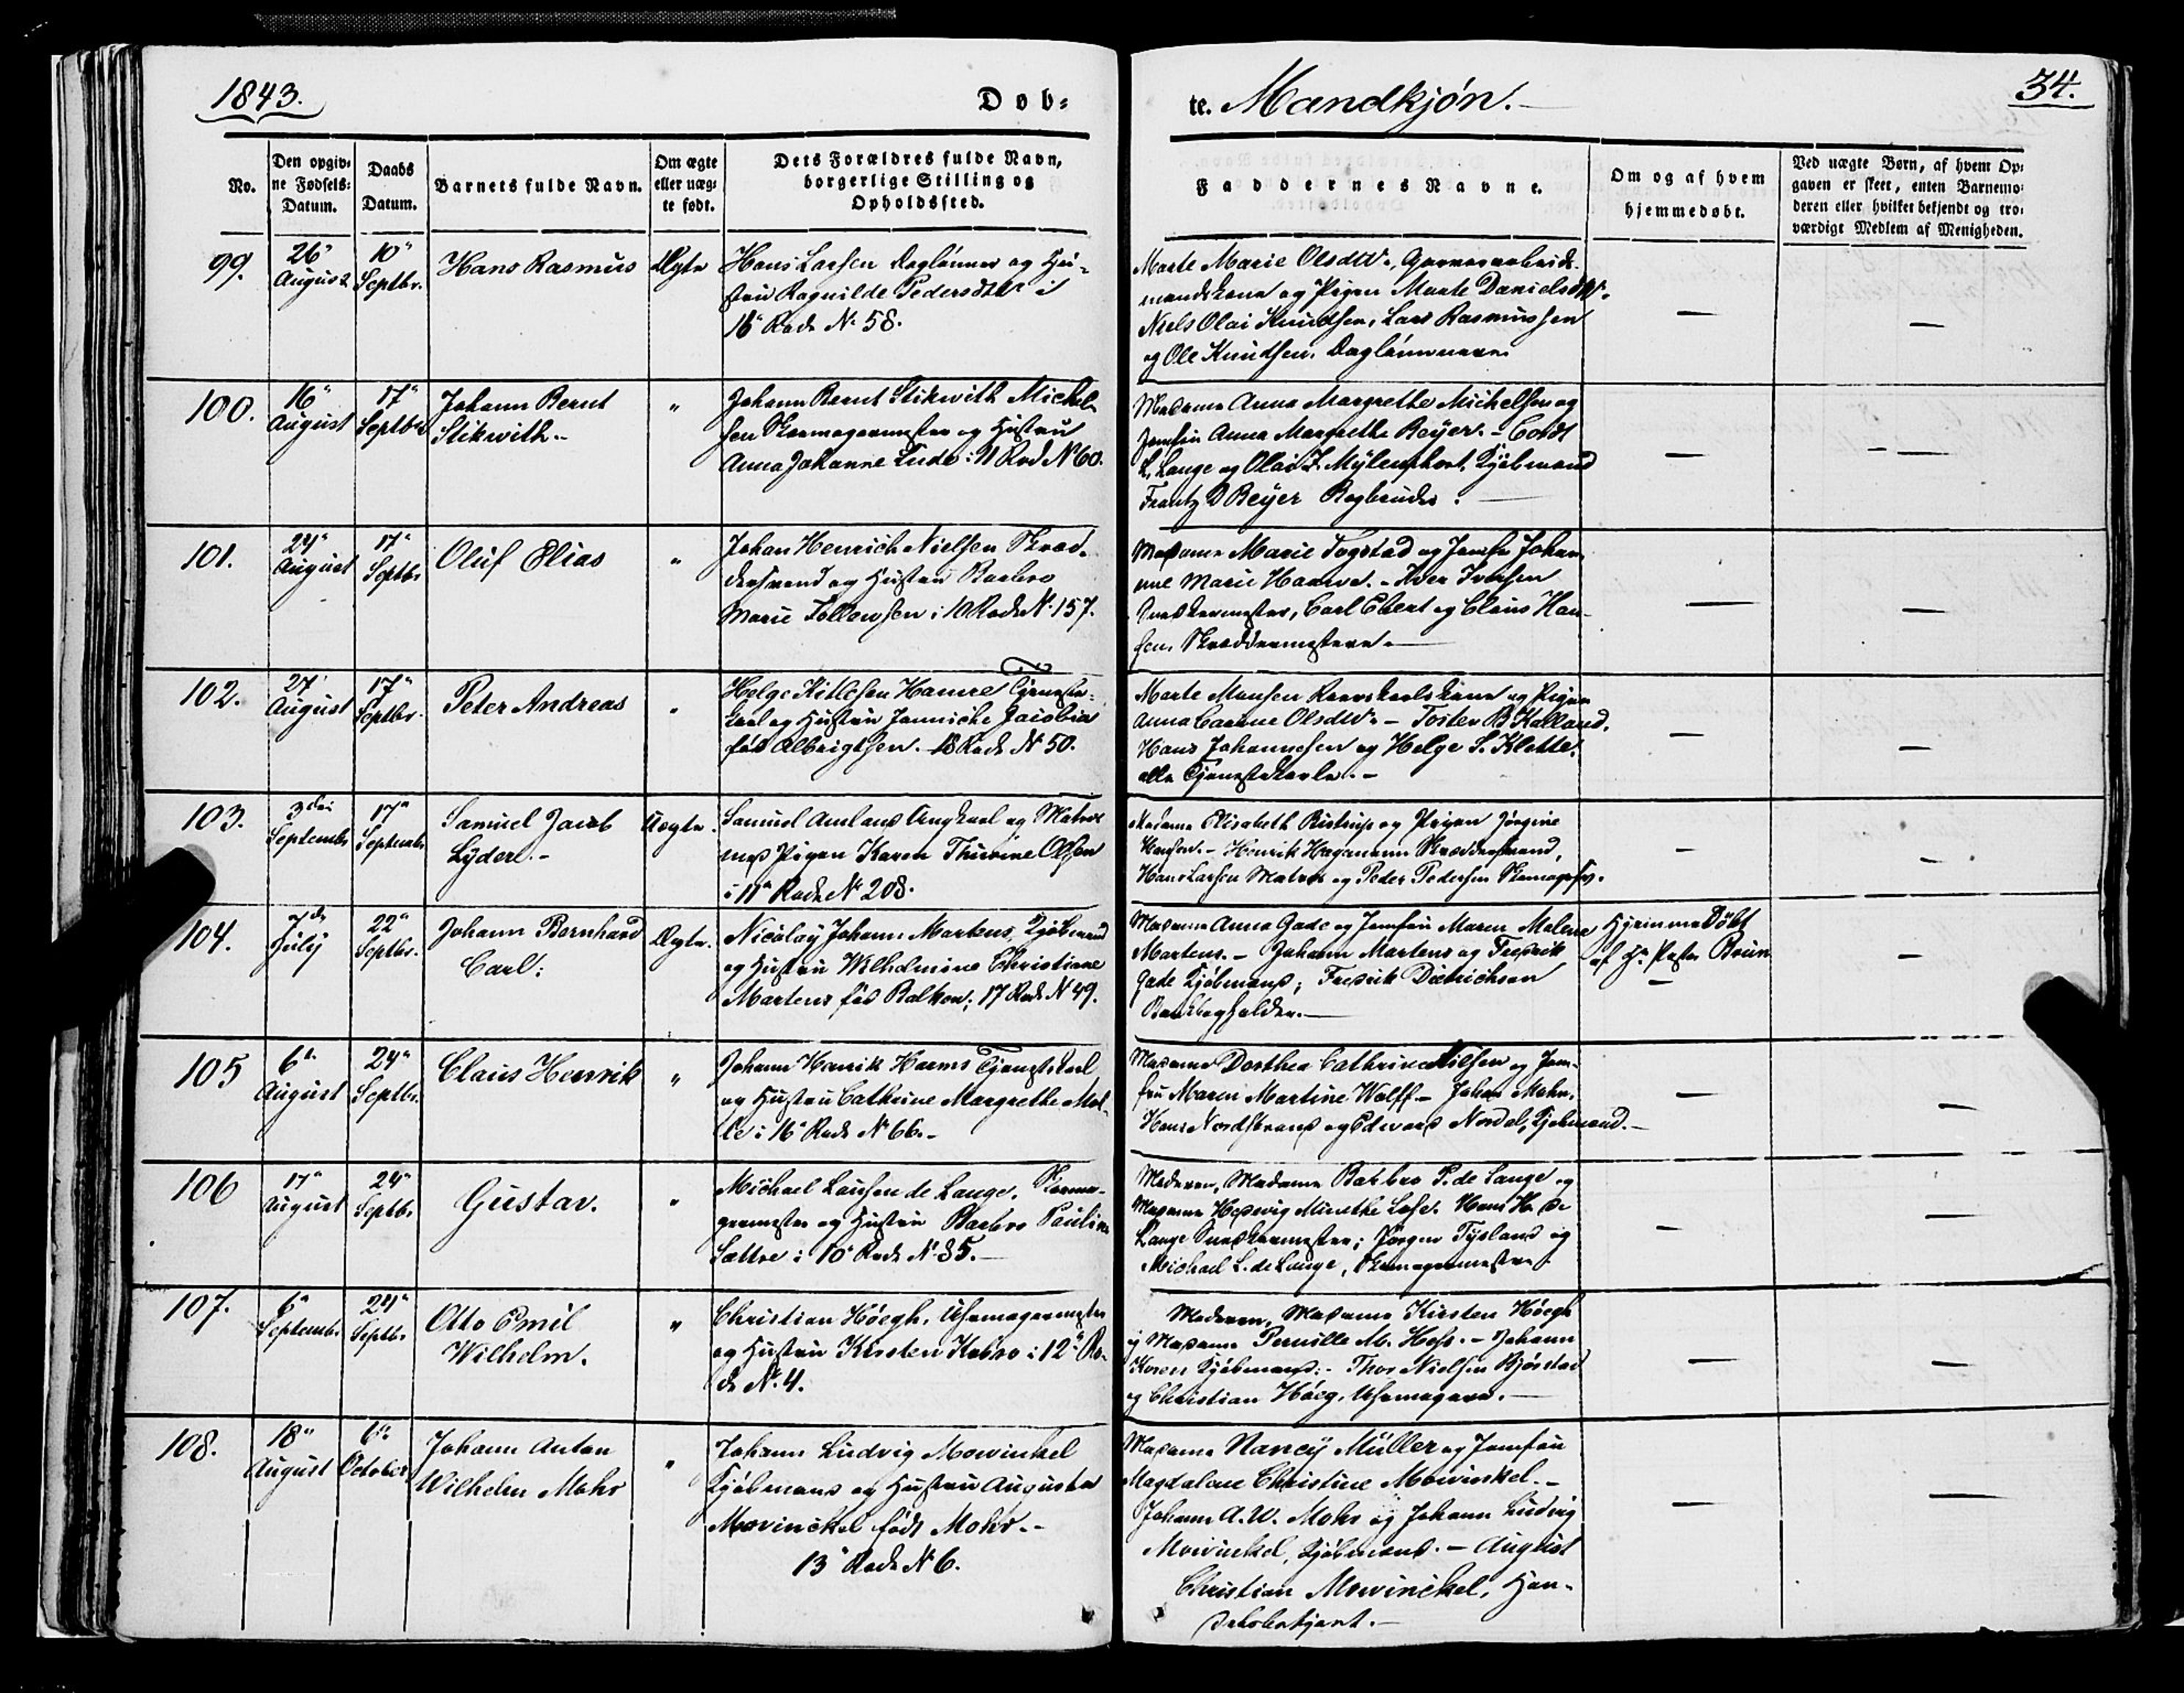 1843.
Døb-
te. Mandkjøn.
34.
No.
Den opgiv-
ne Fødsels-
Datum.
Daabs
Datum.
Barnets fulde Navn.
Om ægte
eller uæg-
te født.
Dets Forældres fulde Navn,
borgerlige Stilling og
Opholdssted.
Faddernes Navne.
Om og af hvem
hjemmedøbt.
Ved uægte Børn, af hvem Op-
gaven er skeet, enten Barnemo-
deren eller hvilket bekjendt og tro-
værdigt Medlem af Menigheden.
99.
26"
August
10"
Septbr.
Hans Rasmus
Ægte
Hans Larsen Daglønner og Hu-
stru Ragnilde Pedersdtr i
16" Rode No 58.
Marte Marie Olsdtr.,
mandskone og Pigen Marte Danielsdtr.
Niels Olai Knudsen, Lars Rasmussen
og Ole Knudsen, Daglønnere
—
—
100.
16"
August
17"
Septbr
Johann Bernt
Stikwith.-
"
Johann Bernt Stikwith Michel-
sen Skomagermester og Hustru
Anna Johanne Lude i 11 Rod No 60.
Madame Anna Margrethe Michelsen og
Jomfru Anna Margrethe Beyer. - Cordt
L. Lange og Olai J. Mylenphort, Kjøbmænd
Frantz D Beyer Bogbinder.
—
—
101.
24"
August
17"
Septbr
Oluf Elias
"
Johan Henrich Nielsen Skræd-
dersvend og Hustru Barbro
Marie Tollewsen i 10 Rode No 157.
Madame Marie Togstad og Jomfr Johan-
ne Marie Haarve. - Iver Iversen
Snedkermester, Carl Ebert og Claus Han-
sen, Skræddermestere.
—
—
102.
27'
August
17"
Septbr.
Peter Andreas
"
Helge Kitlesen Hamre Tjeneste-
karl og Hustru Jannicke Jacobia
fød Albrigtsen. 18 Rode No 50.
Marte Monsen kone og Pigen
Anna Olsdtr. - Tosten B Kalland,
Hans Johannesen og Helge S. Klette,
alle Tjenestekarle. -
—
—
103.
3die
Septembr
17"
Septembr
Samuel Jacob
Lyder. -
Uægte.
Samuel Ungkarl og Matros
med Pigen Karen Thurine Olsen
i 11" Rode No 208.
Madame Elisabeth Bistrup og Pigen Jørgine
Hansen. - Henrik Hagemann Skræddersvend,
Hans Larsen Matros og Peder Pedersen Skomagersv.
—
—
104.
7de
July
22"
Septbr.
Johann Bernhard
Carl.
Ægte.
Nicolay Johann Martens, Kjøbmand
og Hustru Wilhelmine Christiane
Martens fød Balkow; 17 Rode No 49.
Madame Anna Gade og Jomfru Maren Malene
Martens. - Johann Martens og Fredrik
Gade Kjøbmænd; Fredrik Dietrichson
Bankbogholder.
Hjemmedøbt
af Hr. Pastor Brun
—
—
105
6te
August
24"
Septbr.
Claus Henrik
"
Johann Henrik Harms Tjenestekarl
og Hustru Cathrine Margrethe Mol-
le i 16" Rode No 66. -
Madame Dorthea Cathrine Nilsen og Jom-
fru Maren Martine Wolff - Johan Mohn,
Hans Nordstrand og Edvard Nordal, Kjøbmænd. -
—
—
106
17"
August
24"
Septbr
Gustav.
"
Michael Laursen de Lange, Skoma-
germester og Hustru Barbro Pauline
Sættre i 10" Rode No 35. -
Moderen, Madame Barbro P. de Lange og
Madame Hedevig Mirethe Lose. Hans H. de
Lange Snedkermester; Jørgen Tysland og
Michael L. de Lange, Skomagermestre.
—
—
107.
6"
Septembr
24"
Septbr
Otto Emil
Wilhelm.
"
Christian Høegh, Uhrmagermester
og Hustru Kirsten Krbro i 12" Ro-
de No. 4.
Moderen, Madame Kirsten Høegh
og Madame Pernille M. Hess. - Johann
Koren Kjøbmand. - Thor Nielsen Bjørstad
og Christian Høeg, Uhrmagere. -
—
—
108.
18"
August
1ste
October
Johann Anton
Wilhelm Mohr
"
Johann Ludvig Mowinkel
Kjøbmand og Hustru Augusta
Mowinckel født Mohr. -
13" Rode No 6.
Madame Nancy Müller og Jomfru
Magdalene Christine Mowinckel. -
Johann A. W. Mohr og Johann Ludvig
Mowinckel, Kjøbmænd. - August
Christian Mowinckel, Han-
delsbetjent. -
—
—